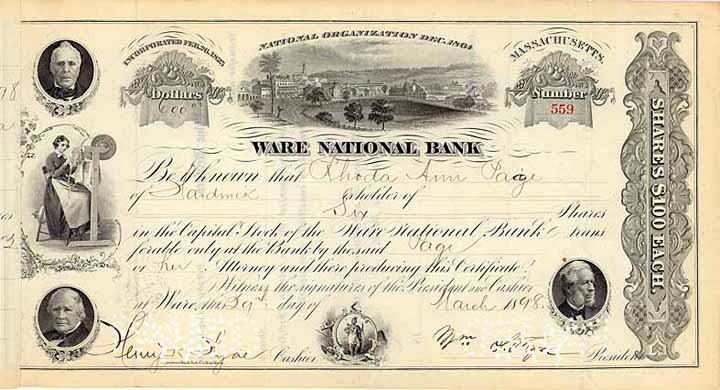 NATIONAL ORGANIZATION DEC. 1864
INCORPORATED FEB. 26, 1825.
MASSACHUSETTS.
Dollars
600
Number
559
WARE NATIONAL BANK
Be it known that Rhoda Ann Paige
of Hardwick is holder of
Six Shares
in the Capital Stock of the Ware National Bank trans
ferable only at the Bank by the said Paige
or her Attorney and there producing this Certificate.
Witness the signatures of the President and Cashier
at Ware, this 29th day of March 1898.
Henry K. Hyde Cashier
Wm. Hyde President
SHARES $100 EACH.
98